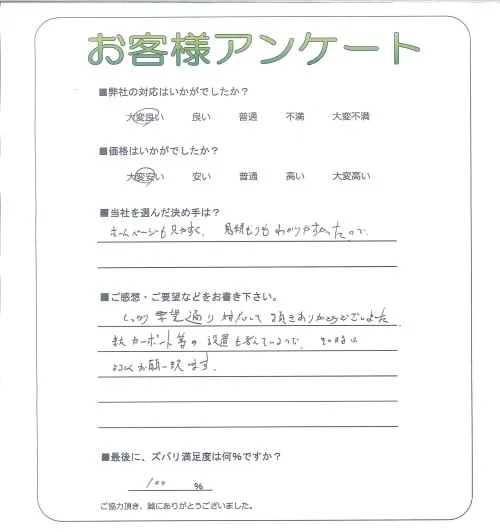 お客様アンケート
■弊社の対応はいかがでしたか？
大変良い 良い 普通 不満 大変不満
■価格はいかがでしたか？
大変安い 安い 普通 高い 大変高い
■当社を選んだ決め手は？
ホームページも見やすく、見積もりもわかりやすかったので、
■ご感想・ご要望などをお書き下さい。
しっかり希望通り対応して頂きありがとうございました
またカーポート等の設置も考えているので、その時は
よろしくお願い致します。
■最後に、ズバリ満足度は何％ですか？
100 ％
ご協力頂き、誠にありがとうございました。